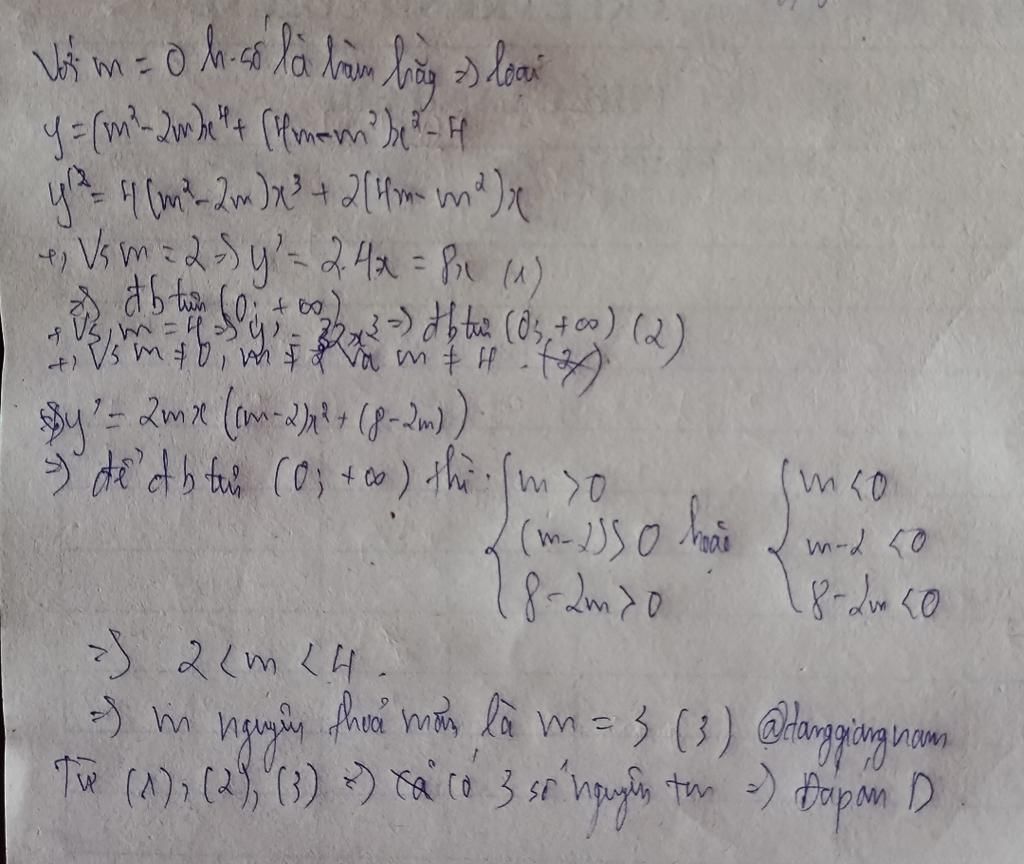 Với m = 0 h.số là hàm hằg => loại
y = (m² - 2m)x⁴ + (4m - m²)x² - 4
y'² = 4(m² - 2m)x³ + 2(4m - m²)x
+, Vs m = 2 => y' = 2.4x = 8x (1)
=> đb trên (0; +∞)
+ Vs, m = 4 => y' = 32x³ => đb trên (0; +∞) (2)
+, Vs m ≠ 0, m ≠ 2 và m ≠ 4 .
=> y' = 2mx ((m-2)x² + (8-2m))
=> để đb trên (0; +∞) thì: { m > 0 { m < 0
(m-2) > 0 hoặc m-2 < 0
8-2m > 0 8-2m < 0
=> 2 < m < 4.
=> m nguyên thoả mãn là m = 3 (3) @danggiangnam
Từ (1), (2), (3) => có 3 số nguyên tm => Đáp án D.